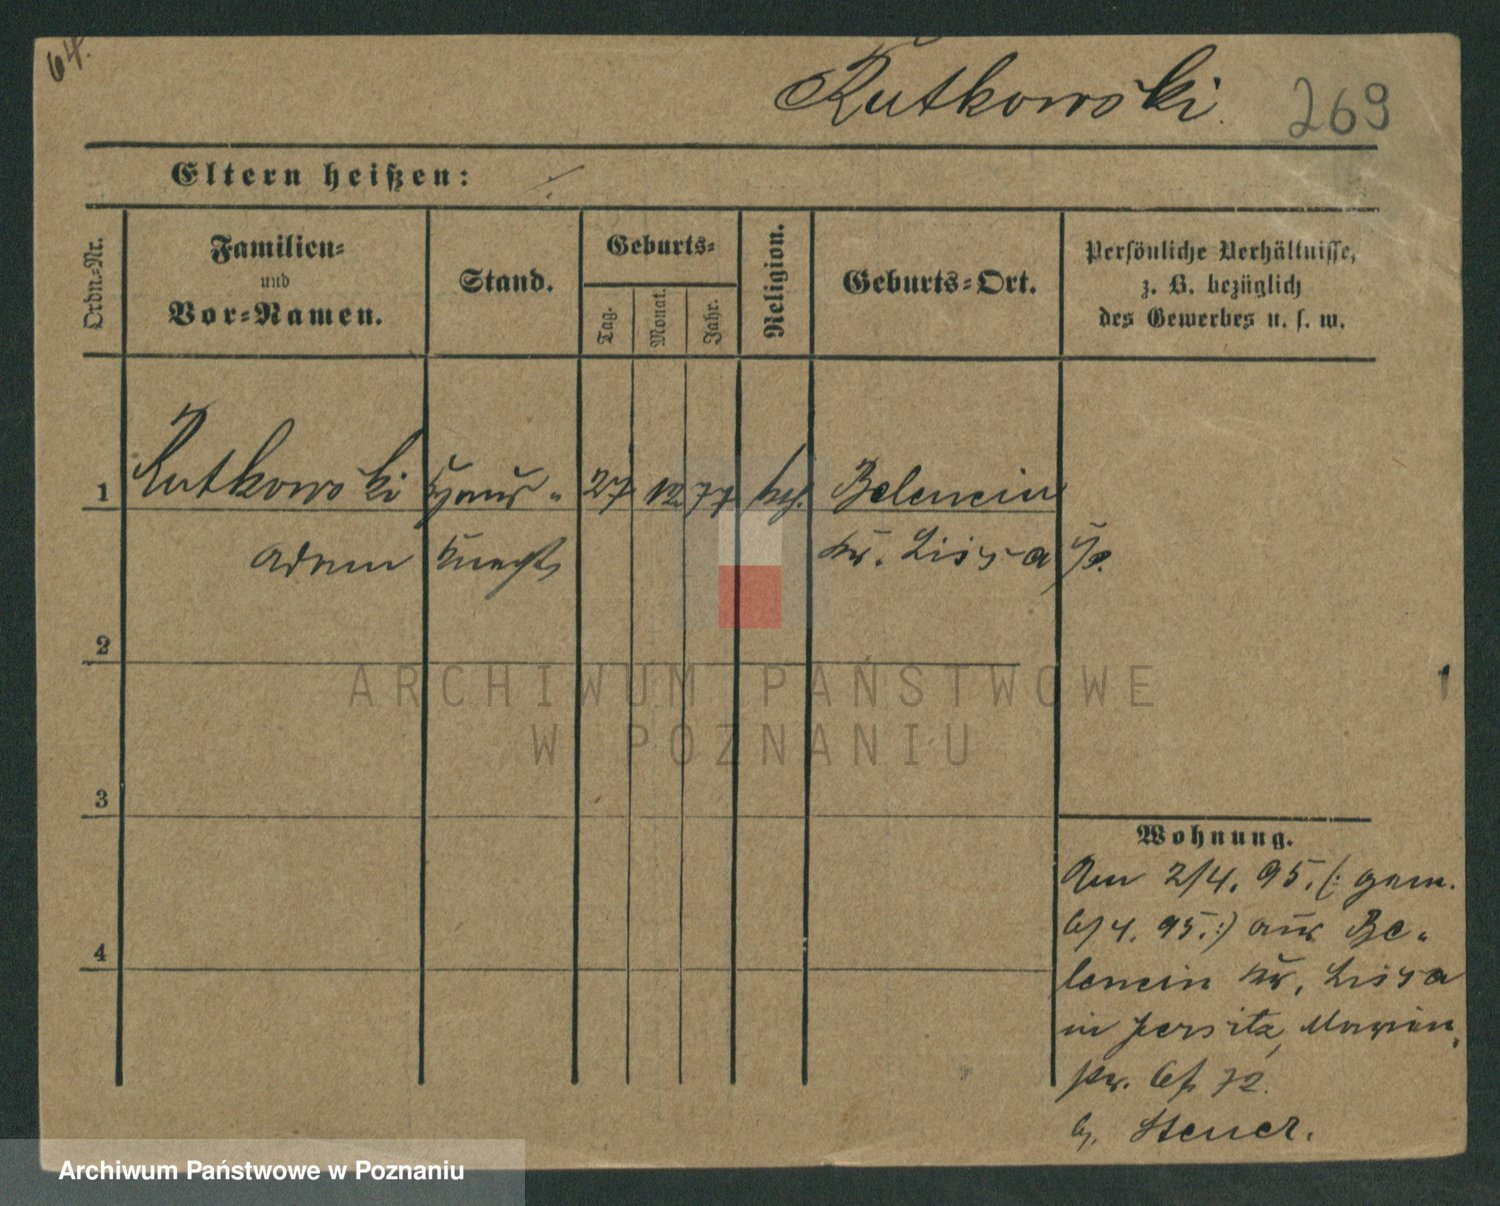 64.
Rutkowski 269
Eltern heißen: ./.
Ordn.-Nr.
Familien-
und
Vor-Namen.
Stand.
Geburts-
Tag.
Monat.
Jahr.
Religion.
Geburts-Ort.
Persönliche Verhältnisse,
z. B. bezüglich
des Gewerbes u. s. w.
1 Rutkowski Haus- 27 12 77 Belencin
Adam knecht Kr. Lissa i/P.
2
3
4
Wohnung.
Am 2/4. 95. (: gem.
6/4. 95. :) aus Be-
lencin Kr. Lissa
in Jersitz,
72.
b. Steuer.
ARCHIWUM PAŃSTWOWE
W POZNANIU
Archiwum Państwowe w Poznaniu